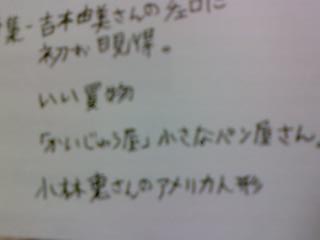 集-吉本由美さんのチェロに
初お目見得。
いい買物
「かいじゅう屋」小さなパン屋さん。
小林恵さんのアメリカ人形